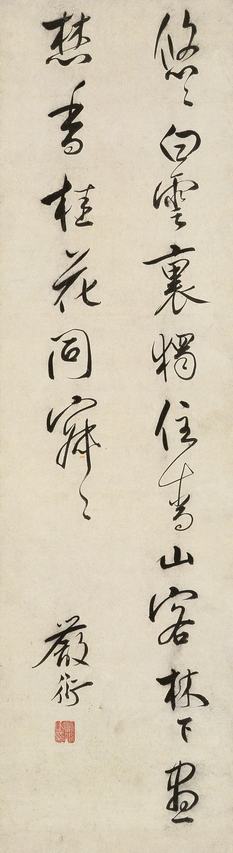 悠〻白雲裏獨住青山客林下晝
焚香桂花同寂〻
嚴衍